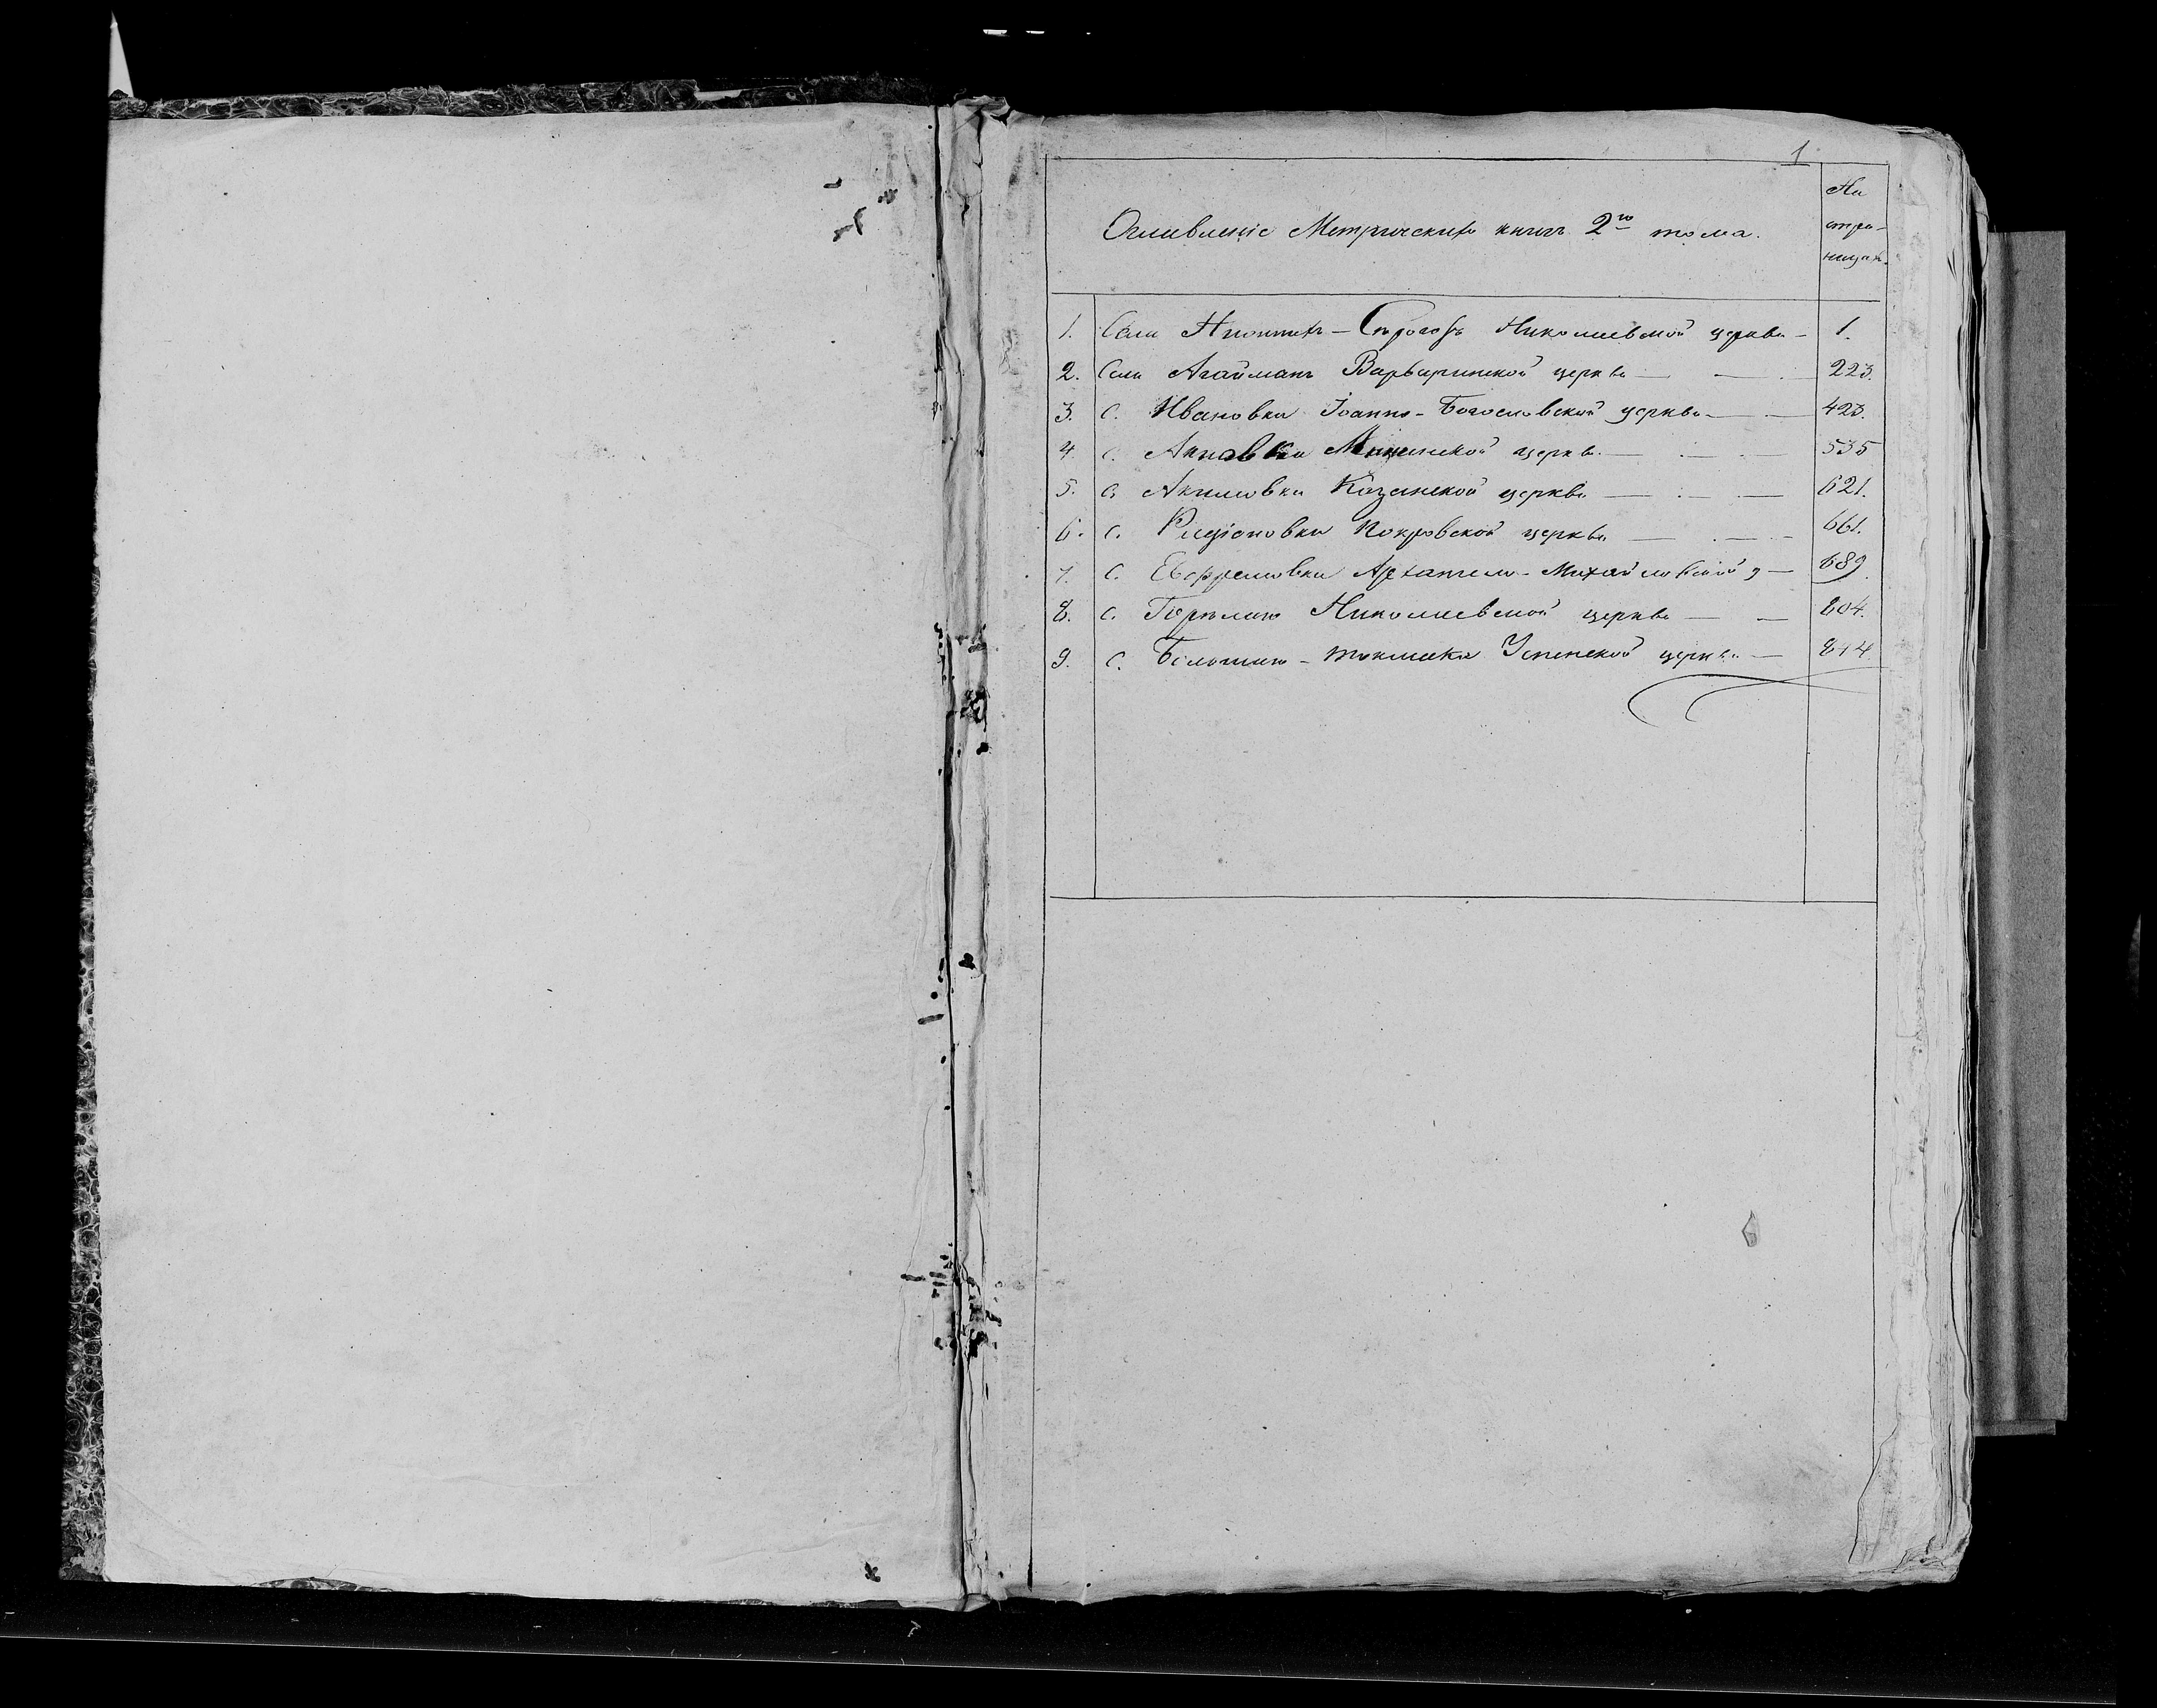 1
Оглавленіе Метрическихъ книгъ 2го тома.
На стра-
ницах.
1. Села Нижнихъ-Сѣрогозъ Николаевской церкви 1.
2. Села Агайманъ Варваринской церкви 223.
3. с. Ивановки Іоанно-Богословской церкви 423.
4. с. Анновки церкви 535
5. с. Акимовки Казанской церкви 621.
6. с. Радіоновки Покровской церкви 661.
7. с. Ефремовки Архангело-Михайловской ц 689
8. с. Горѣлаго Николаевской церкви 804.
9. с. Большаго-Токмака Успенской церкви 844